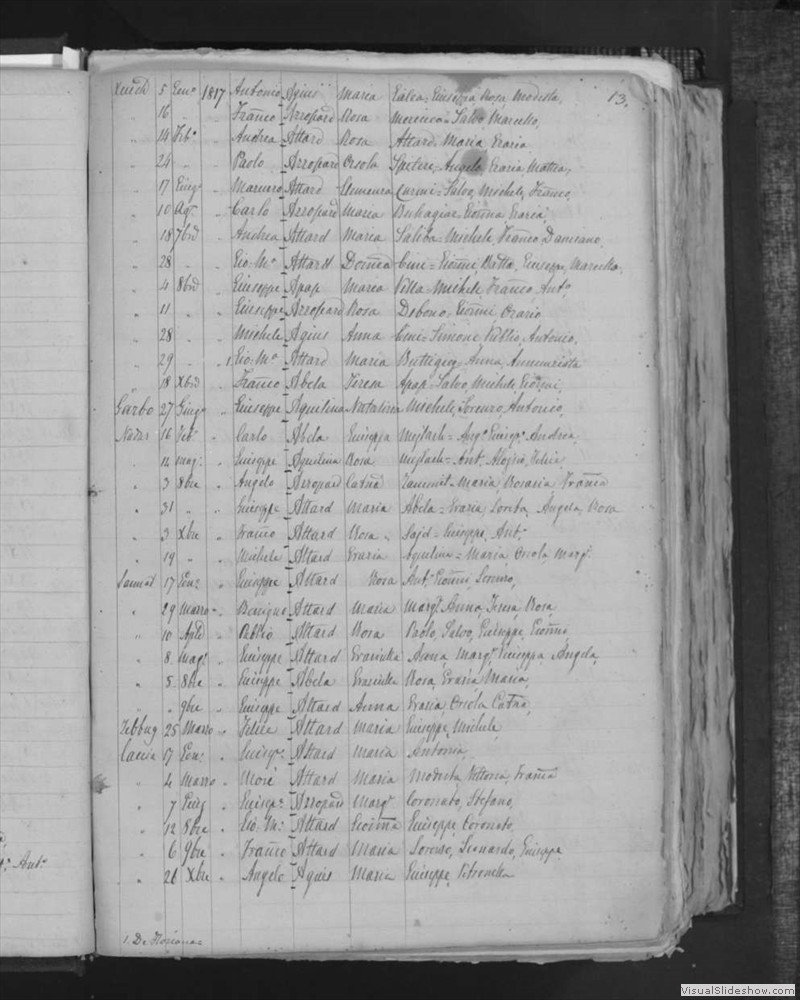 13.
Xeuch 5 Genº 1817 Antonio Agius Maria Galea, Giuseppa Rosa Modesta,
" 16 " " Franco Arropard Rosa Mercieca = Salvo Marcello,
" 14 Febº " Andrea Attard Rosa Attard, Maria Grazia
" 24 " " Paolo Arropard Orsola Spiteri = Angela Grazia Mattea,
" 17 Giugº " Attard Salvo, Michele, Franco,
" 10 Agº " Carlo Arropard Maria Buhagiar, Gioanna Grazia
" 18 7bre " Andrea Attard Maria Saliba Michele Franco Damiano,
" 28 " " Gio: Mª Attard Cini = Gioanni Batta, Giuseppe Marcello,
" 4 8bre " Giuseppe Apap Maria Vella = Michele Franco Antº
" 11 " " Giuseppe Arropard Rosa Debono = Gioanni Orazio
" 28 " " Michele Agius Anna Cini = Simone Publio, Antonio,
" 29 " " 1 Gio: Mª Attard Maria Buttigieg = Anna, Annunziata
" 18 Xbre " Franco Abela Teresa Apap = Salvo, Michele Gioanni,
Garbo 27 Giugº " Giuseppe Aquilina Natalizia Michele, Lorenzo, Antonio,
Nadur 16 Febº " Carlo Abela Giuseppa Meilach = Angº Giusepº Andrea
" 14 Magº " Giuseppe Aquilina Rosa Meilach = Ant. Felice
" 3 8bre " Angelo Arropard Catna Zammit = Maria, Rosaria Franca
" 31 " " Giuseppe Attard Maria Abela = Grazia, Angela, Rosa
" 3 Xbre " Franco Attard Rosa " Said = Giuseppe, Antº
" 19 " " Michele Attard Grazia Aquilina = Maria, Orsola, Margª
Sannat 17 Genº " Giuseppe Attard Rosa Antº Gioanni, Lorenzo,
" 29 Marzo " Attard Maria Margª Anna, Teresa, Rosa,
" 10 Aple " Publio Attard Rosa Paolo, Salvo, Giuseppe, Gioanni,
" 8 Magº " Giuseppe Attard Graziulla Anna Margª Giuseppa, Angela,
" 5 8bre " Giuseppe Abela Graziulla Rosa, Grazia, Maria,
" " 9bre " Giuseppe Attard Anna Grazia Orsola Catna,
Zebbug 25 Marzo " Felice Attard Maria Giuseppe, Michele,
Caccia 17 Genº " Giusepº Attard Maria Antonia,
" 4 Marzo " Attard Maria Modesta Vittoria, Franca
" 7 Giug " Giusepº Arropard Margª Coronato, Stefano,
" 12 8bre " Gio: Mª Attard Gioanna Giuseppe Coronato,
" 6 9bre " Franco Attard Maria Lorenzo, Leonardo, Giuseppe
" 26 Xbre " Angelo Agius Maria Giuseppe, Petronella
Antº
1. De Florianas
VisualSlideshow.com